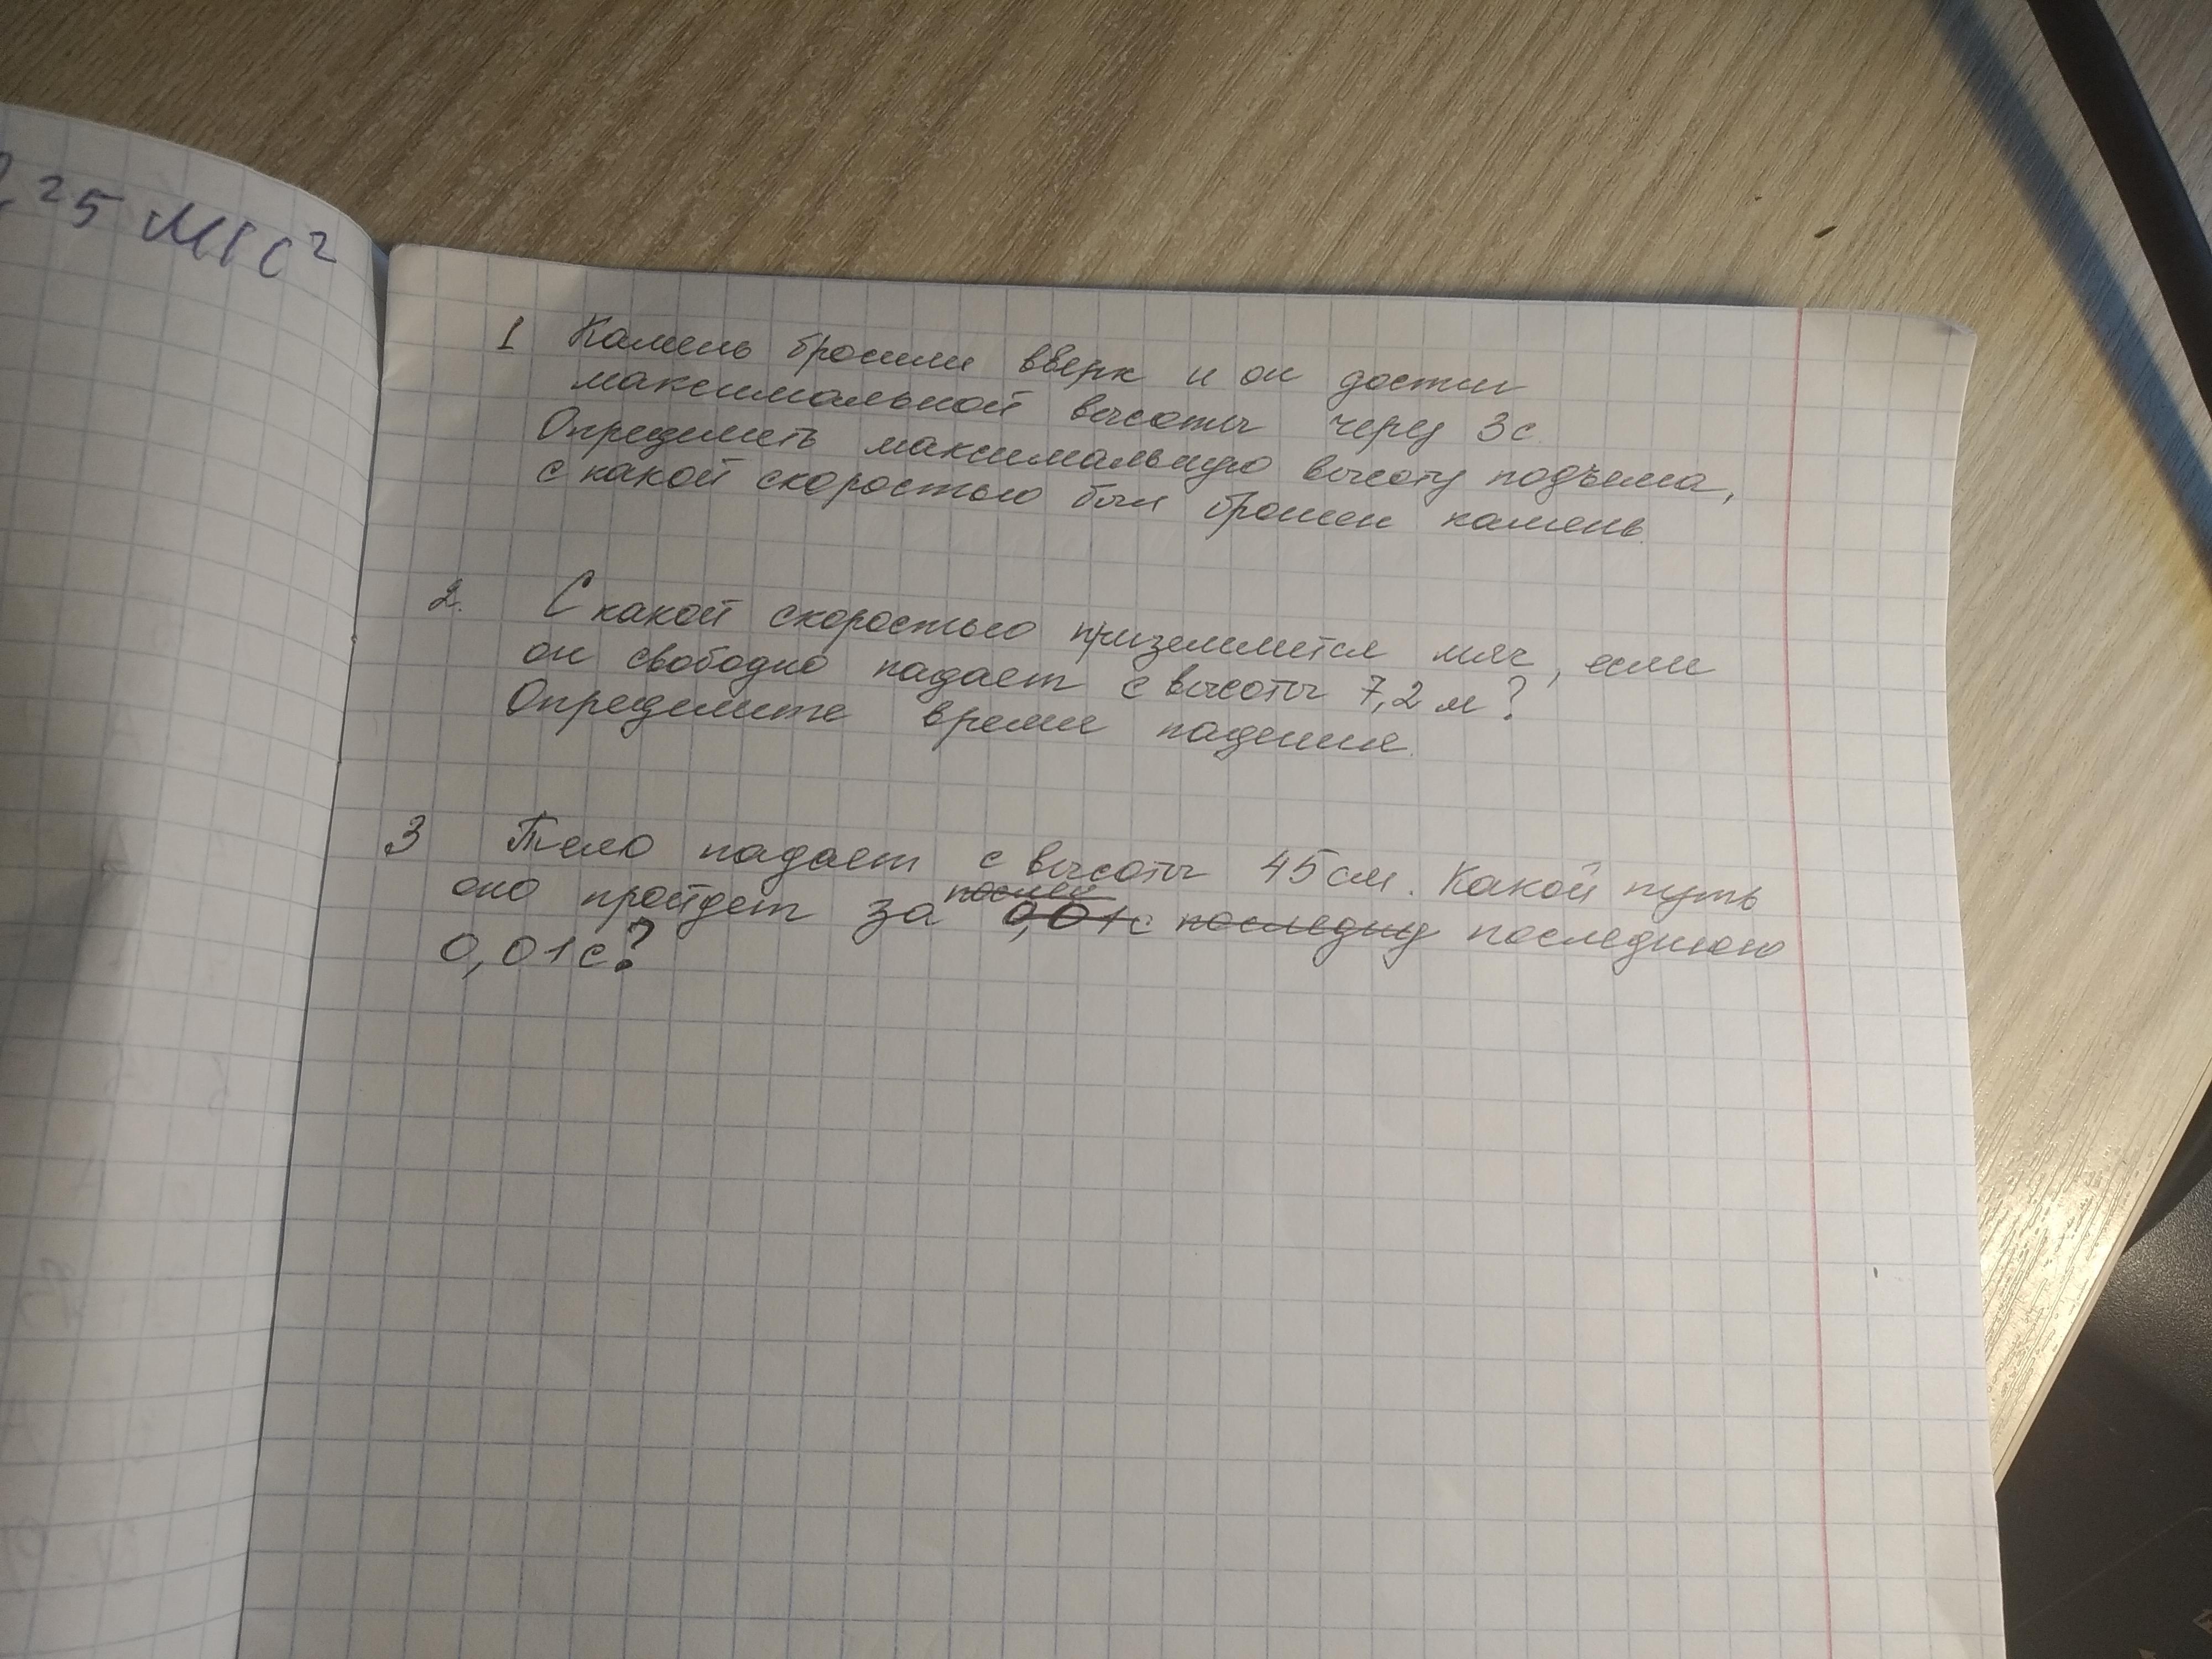 ,25 м/с²
1 Камень бросили вверх и он достиг
максимальной высоты через 3с.
Определить максимальную высоту подъема,
с какой скоростью был брошен камень.
2. С какой скоростью приземлится мяч, если
он свободно падает с высоты 7,2 м?
Определите время падения.
3 Тело падает с высоты 45см. Какой путь
оно пройдет за 0,01с последнюю
0,01с?